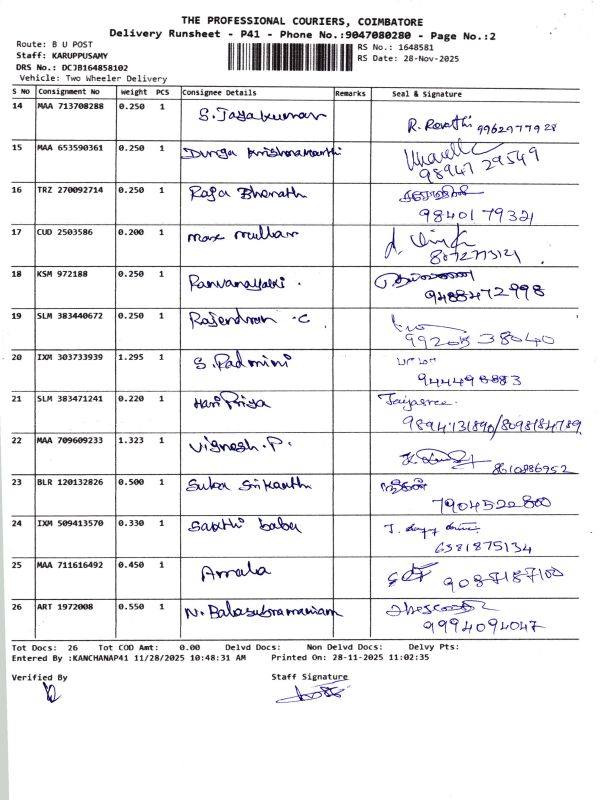 THE PROFESSIONAL COURIERS, COIMBATORE
Delivery Runsheet - P41 - Phone No.:9047080280 - Page No.:2
Route: B U POST
Staff: KARUPPUSAMY
DRS No.: DCJB164858102
Vehicle: Two Wheeler Delivery
RS No.: 1648581
RS Date: 28-Nov-2025
S No Consignment No Weight PCS Consignee Details Remarks Seal & Signature
14 MAA 713708288 0.250 1 S. Jayakumar
R. Revathi 9962977928
15 MAA 653590361 0.250 1 Durga Krishnamurthi
98947 29549
16 TRZ 270092714 0.250 1 Raja Bharath
98401 79321
17 CUD 2503586 0.200 1
8072773121
18 KSM 972188 0.250 1
9488472998
19 SLM 383440672 0.250 1 Rajendran .C
99205 38040
20 IXM 303733939 1.295 1 S. Padmini
21 SLM 383471241 0.220 1 Hari Priya Jaijasree.
9894131890/8098184789
22 MAA 709609233 1.323 1 Vignesh. P.
8610886952
23 BLR 120132826 0.500 1 Srikanth
7904522800
24 IXM 509413570 0.330 1 Sakthi baba
6381875134
25 MAA 711616492 0.450 1 Amala
9087187100
26 ART 1972008 0.550 1 N. Balasubramaniam
9994094047
Tot Docs: 26 Tot COD Amt: 0.00 Delvd Docs: Non Delvd Docs: Delvy Pts:
Entered By :KANCHANAP41 11/28/2025 10:48:31 AM Printed On: 28-11-2025 11:02:35
Verified By Staff Signature